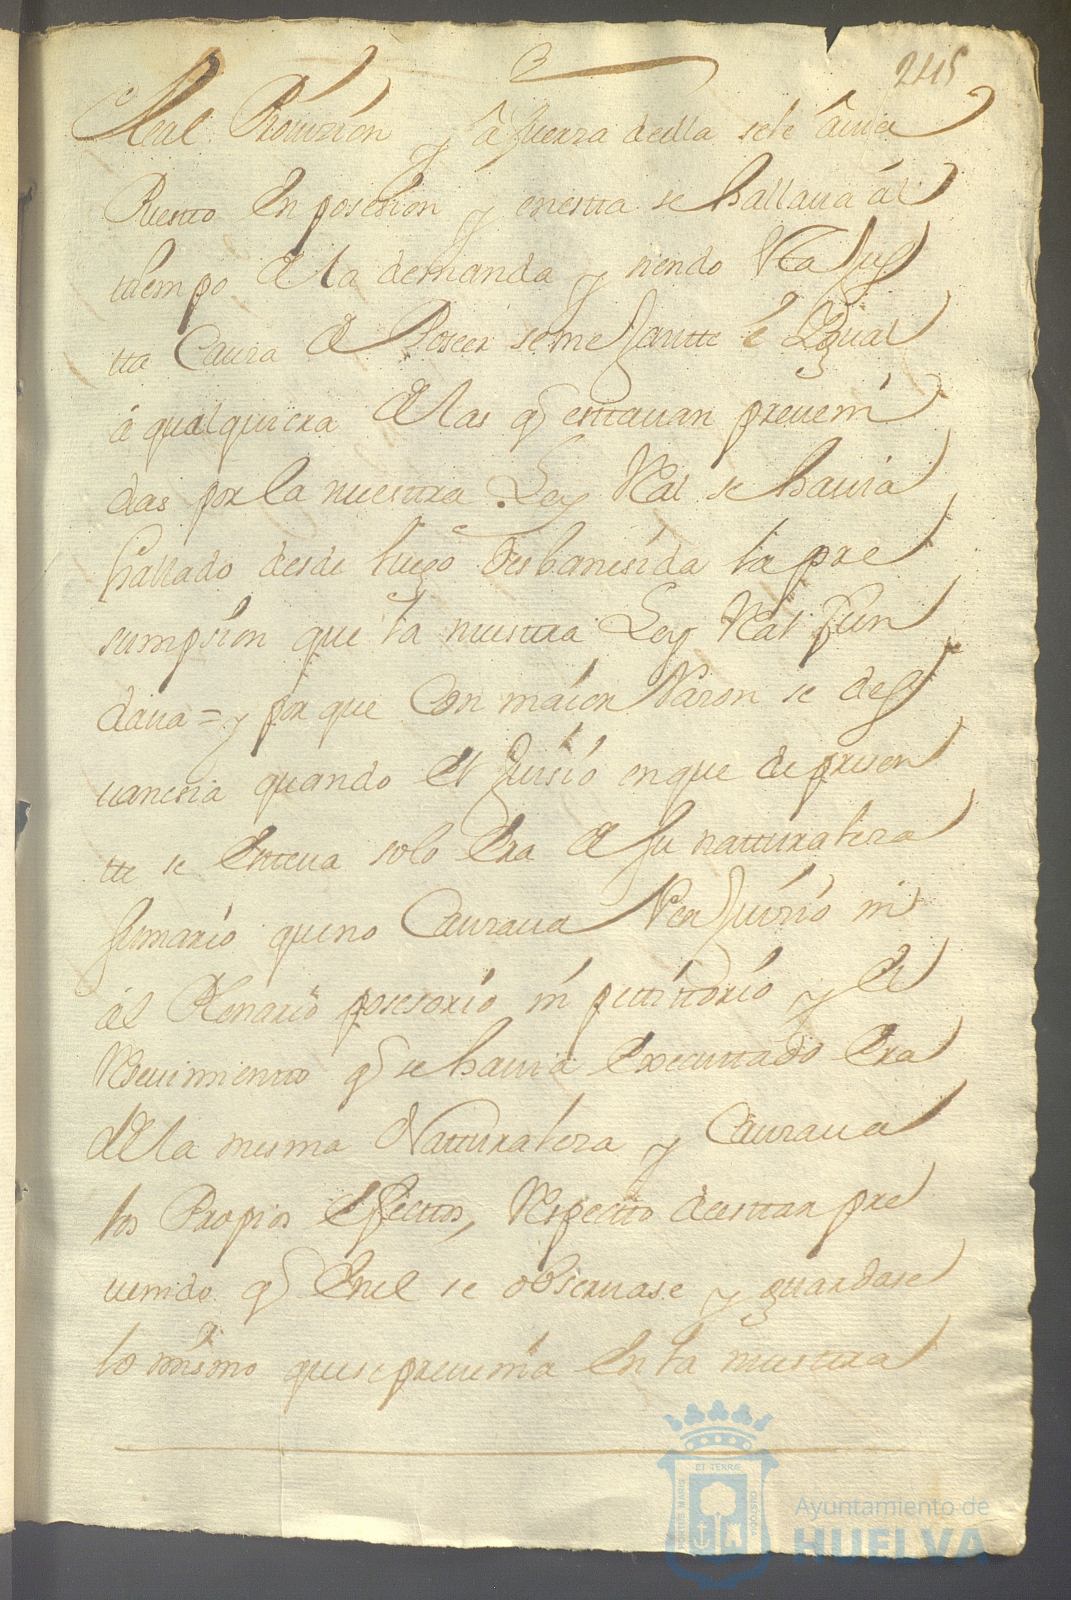 245
Real Provizion y â fuerza deella sele âuia
Puestto En posesion y enestta se hallaua âl
tiempo de la demanda y siendo Esta Jus
tta Causa de Poseer semejantte é Igual
â qualquiera de las q esttauan preueni
das por la nuestra Ley Rl se hauia
hallado desde luego desbanesida la pre
sumpsion que la nuestra Ley Rl fun
daua = y por que Con maior Razon se des
uanesia quando El Juisio enque de presen
tte se Esttaua solo Era de su natturaleza
sumario queno Causaua Perjuizio ni
âl Plenario posesorio ni petittorio y El
Reciuimientto q se hauia Executtado Era
de la mesma Natturaleza y Causaua
los Propios Efecttos, Respecto deesttar pre
uenido q Enel se obseruase y guardase
lo mismo quese preuenia En la nuestra
PORTUS MARIS
ET TERRÆ
CUSTODIA
Ayuntamiento de
HUELVA